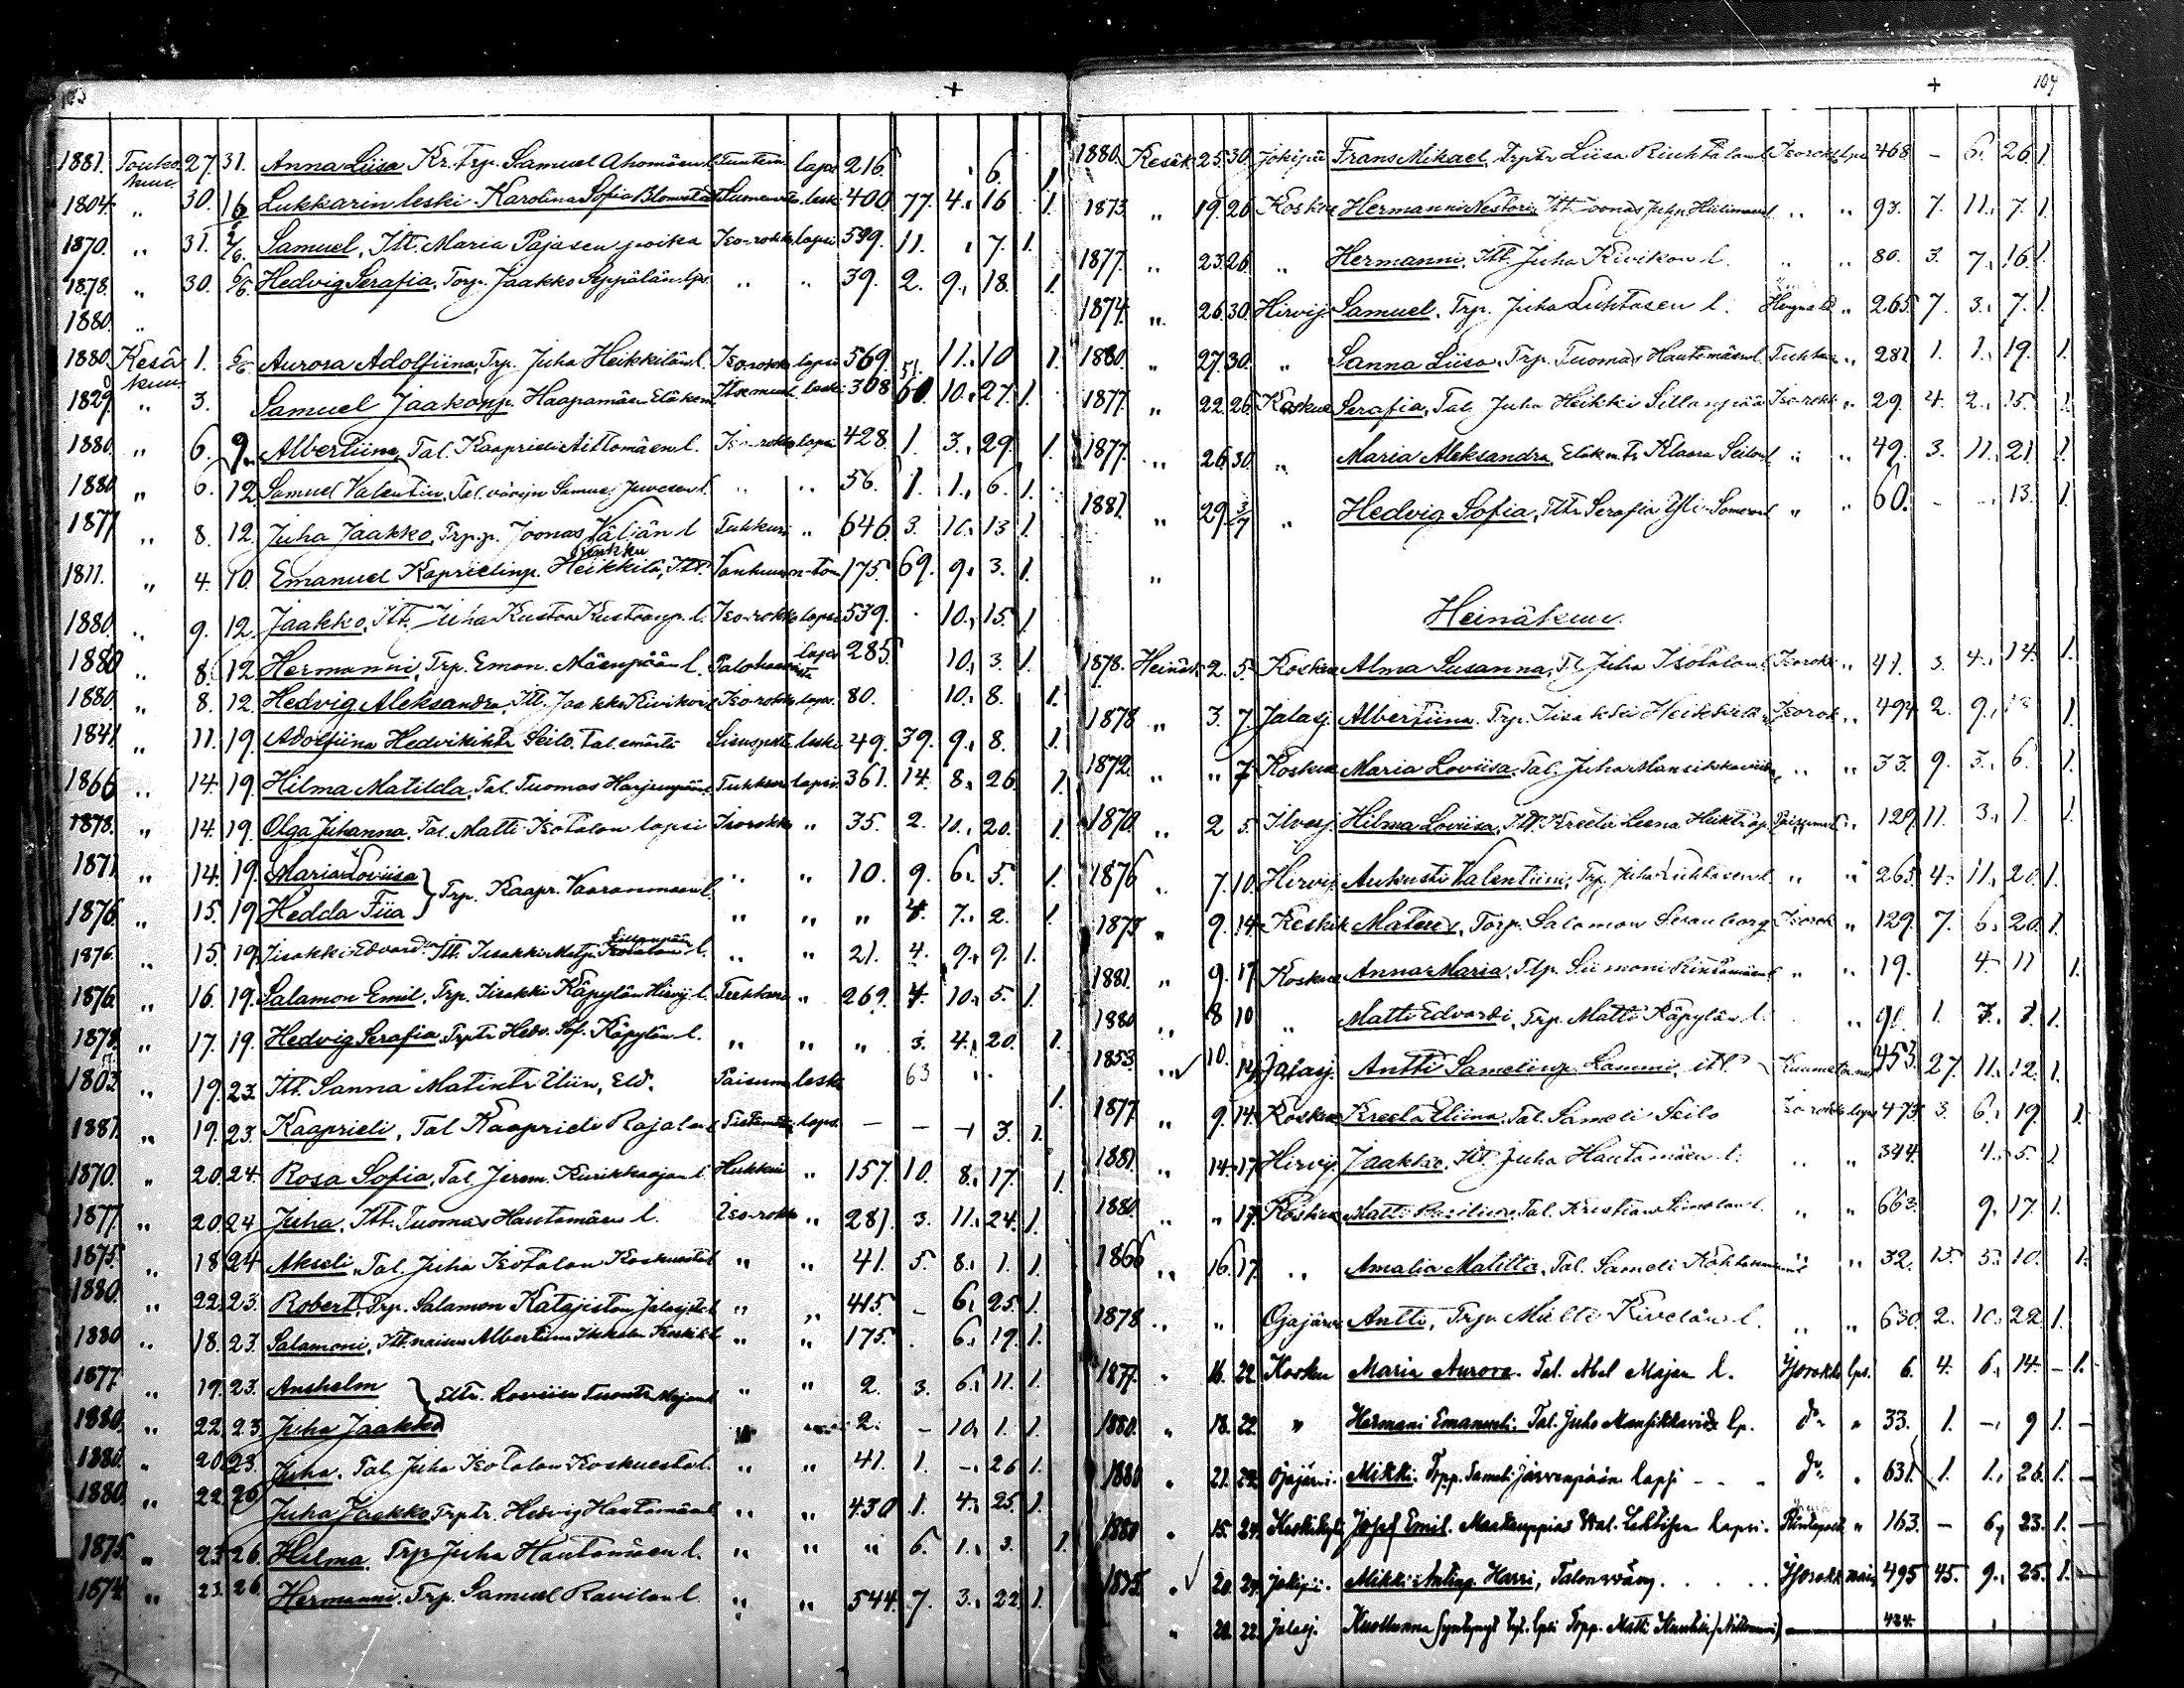 103 +
1881. Touko kuu. 27. 31. Anna Liisa Kr. Trp. Samuel Ahomäen l. Tuntem. laps 216. 6. 1.
1804. „ 30. 16/6 Lukkarin leski Karolina Sofia Blomstedt leski 400. 77. 4. 16 1.
1870. „ 31. 2/6. Samuel, Itt. Maria Pajasen poika Iso-rokko lapsi 599. 11. „ 7. 1.
1878. „ 30. 6/6. Hedvig Serafia, Torp. Jaakko Seppälän lps. „ „ 39. 2. 9. 18. 1.
1880. „
1880. Kesä kuu 1. Aurora Adolfiina, Trp. Juha Heikkilän l. Iso-rokko lapsi 569. 11. 10 1.
1829. „ 3. Samuel Jaakonp. Haapamäen Eläkem. leski 308 10. 27. 1.
1880. „ 6. 9. Albertiina, Tal. Kaaprieli Aittomäen l. Iso-rokko lapsi 428. 1. 3. 29. 1.
1880 „ 6. 12. Samuel Valentin, Tal. vävyn Samuel Juvosen l. „ „ 56. 1. 1. 6. 1.
1877 „ 8. 12. Juha Jaakko, Trp. p. Joonas Väljän l Tuhkuri „ 646. 3. 10. 13 1.
1811. „ 4. 10. Emanuel Kaprielinp. Heikkilä, Itt. Vanhuus n-ton 175. 69. 9. 3. 1.
1880. „ 9. 12. Jaakko, Itt. Juha Kustaa Kustaanp. l. Iso-rokko lapsi 539. 10. 15. 1.
1880 „ 8. 12. Hermanni, Trp. Eman. Mäenpään l. Palohaavoista lapsi 285. 10. 3. 1.
1880. „ 8. 12. Hedvig Aleksandra, Itt. Jaakko Kivikon l. Iso-rokko laps. 80. 10. 8. 1.
1841 „ 11. 19. Adolfiina Hedvikintr Seilo, Tal. emäntä leski 49. 39. 9. 8. 1.
1866 „ 14. 19. Hilma Matilda, Tal. Tuomas Harjunpään l. Tuhkuri lapsi 361. 14. 8. 26 1.
1878. „ 14. 19. Olga Juhanna, Tal. Matti Isotalon lapsi Isorokko „ 35. 2. 10. 20. 1.
1871 „ 14. 19. Maria Loviisa } Trp. Kaapr. Vaaranmaan l. „ „ 10. 9. 6. 5. 1.
1876. „ 15. 19. Hedda Fiia „ „ „ 4. 7. 2. 1.
1876. „ 15. 19. Iisakki Edvard, Itt. Iisakki Matp. Sillanpään l. „ „ 21. 4. 9. 9. 1.
1876. „ 16. 19. Salamon Emil, Trp. Iisakki Käpylän Hirvij. l. Tuhkuri „ 269. 4. 10. 5. 1.
1878. „ 17. 19. Hedvig Serafia, Trptr Hedv. Sof. Käpylän l. „ „ „ 3. 4. 20. 1.
1803. „ 19. 23. Itt. Sanna Matintr Eld. leski 63 „ 1.
1881. „ 19. 23. Kaaprieli, Tal Kaaprieli Rajalan l laps. — — + 3. 1.
1870. „ 20. 24. Rosa Sofia, Tal. Jerem. Kurikkaojan l. Hukkui „ 157. 10. 8. 17. 1.
1877. „ 20. 24 Juha, Itt. Tuomas Hautamäen l. Iso-rokko „ 281. 3. 11. 24. 1.
1875. „ 18 24 Akseli, Tal. Juha Isotalon Koskuesta l. „ „ 41. 5. 8. 1. 1.
1880. „ 22. 23. Robert, Trp. Salamon Katajiston Jalasjstä l. „ „ 415. — 6. 25. 1.
1880 „ 18. 23. Salamoni, Itt. naisen Albertiina Ikkelän Keskik. l „ „ 175. 6. 19. 1.
1877. „ 19. 23. Anshelm } Ittr. Loviisa Tuomtr Majan l „ „ 2. 3. 6. 11. 1.
1880. „ 22. 23. Juha Jaakko 2. — 10. 1. 1.
1880. „ 20. 23. Juha, Tal. Juha Isotalon Koskuesta l. „ „ 41. 1. —. 26 1.
1880. „ 22. 26 Juha Jaakko Trptr. Hedvig Hautamäen l „ „ 430 1. 4. 25. 1.
1875. „ 23. 26. Hilma, Trp Juha Hautamäen l. „ „ „ 6. 1. 3. 1.
1874 „ 23. 26. Hermanni, Trp. Samuel Ravilan l. „ „ 544. 7. 3. 22. 1.
+ 104
1880. Kesäk. 25. 30. Jokipii Frans Mikael, Trptr Liisa Riuhtalan l Isorokko lps 468 — 6. 26. 1.
1873. „ 19. 26 Koskue Hermanni Nestori, Itt Joonas Juhp. l „ „ 93. 7. 11. 7. 1.
1877. „ 23. 26. „ Hermanni, Itt. Juha Kivikon l. „ „ 80. 3. 7. 16. 1.
1874. „ 26. 30. Hirvij. Samuel, Trp. Juha Luhtasen l. „ 265. 7. 3. 7. 1.
1880. „ 27. 30. „ Sanna Liisa, Trp. Tuomas Hautamäen l. Tuhkuri „ 281. 1. 1. 19. 1.
1877. „ 22. 26. Koskue Serafia, Tal. Juha Heikki Sillanpää Iso-rokk „ 29. 4. 2. 15. 1.
1877. „ 26. 30. „ Maria Aleksandra, Eläkmtr Klaara Seilon l „ „ 49. 3. 11. 21. 1.
1881. „ 29. 3/7 „ Hedvig Sofia, Ittr Serafia Yli-Someron l „ „ 60. — — 13. 1.
„
Heinäkuu.
1878. Heinäk. 2. 5. Koskue Alma Susanna, Tl. Juha Isotalon l. Isorokk „ 41. 3. 4. 14. 1.
1878 „ 3. 7 Jalasj. Albertiina, Trp. Iisakki Isorok „ 494 2. 9. 1.
1872. „ „ 7 Koskue Maria Loviisa, Tal. Juha Mansikkaviida „ „ 33. 9. 3. 6. 1.
1870. „ 2 5. Ilvesj. Hilma Loviisa, Itt. Kreeta Leena „ 129. 11. 3. 1. 1.
1876 „ 7. 10. Hirvij. Aukusti Valentiini, Trp. Juha Luhtasen l. „ „ 265. 4. 11. 20. 1.
1873 „ 9. 14. Keskik Torp. Salomon Svanborg Isorok „ 129. 7. 6. 20. 1.
1881. „ 9. 17. Koskue Anna Maria, Trp. Siimoni l „ „ 19. 4. 11 1.
1880 „ 8 10 „ Matti Edvardi, Trp. Matti Käpylän l. „ 90. 1. 3. 1.
1853. „ √ 10. 14. Jalasj. Antti Samelinp. Lammi, itl. 453. 27. 11. 12. 1.
1877. „ 9. 14. Koskue Kreeta Eliina, Tal. Sameli Seilo Iso-rokko laps 473. 3. 6. 19. 1.
1881. „ 14. 17 Hirvij. Jaakko, Itt. Juha Hautamäen l. „ „ 344. 4. 5. 1
1880. „ „ 17. Koskue Matti Tal. Kristian l. „ „ 663. 9. 17. 1.
1866 „ 16. 17. „ Amalia Matilta, Tal. Sameli „ „ 32. 15. 5. 10. 1.
1878 „ „ Ojajärvi Antti, Trp. Matti Kivelän l. „ „ 630. 2. 10. 22. 1.
1877. „ 16. 22. Koskue Maria Aurora. Tal. Abel Majan l. Isorokko lps. 6. 4. 6. 14. — 1.
1880. „ 18. 22. „ Hermani Emanueli. Tal. Juho Mansikkavida lp. do. „ 33. 1. — 9 1. —
1880 „ 21. 22. Ojajärvi. Mikki. Torpp. Sameli Järvenpään lapsi - - - do. „ 631. 1. 1. 26. 1. —
1880 „ 15. 24. Keskikylä Josef Emil. Maakauppias Wal. Lehtisen lapsi. „ 163. — 6. 23. 1. —
1835. „ √ 20. 24. Jokipii. Mikki Antinp. Harri, Talonwäng. . . . . Isorokk nais 495 45. 9. 25. 1. —
„ 20. 22. Jalasj. Kuolleena syntynyt tyt. lpsi Torpp. Matti 424.